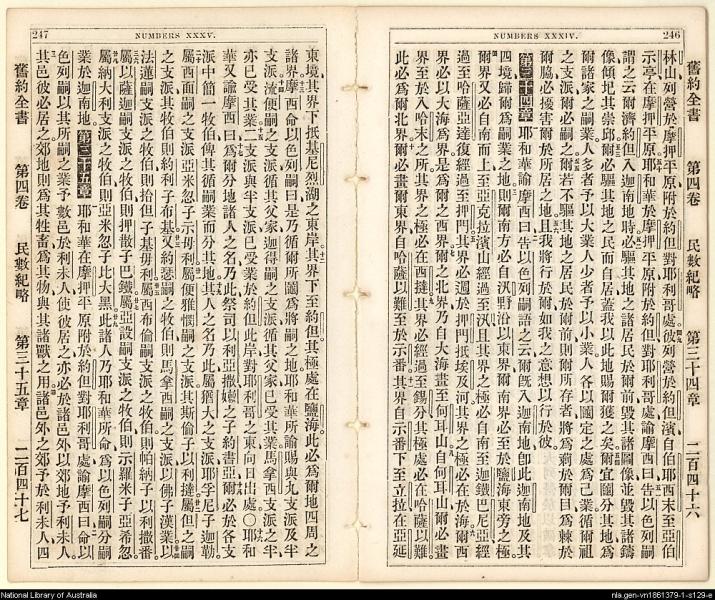 246
NUMBERS XXXIV.
舊約全書 第四卷 民數紀略 第三十四章 二百四十六
林山列營於摩押平原附於約但對耶利哥處彼列營於約但濱自伯耶西末至亞伯
示亭在摩押平原耶和華於摩押平原附於約但對耶利哥處諭摩西曰告以色列嗣
謂之云爾濟約但入迦南地時必驅其地之諸居民於爾前毀其諸圖像並毀其諸鑄
像傾圮其崇邱爾必驅其地之民而自居蓋我以此地賜爾獲之矣爾宜鬮分其地為
爾諸家之嗣業人多者予以大業人少者予以小業人各以鬮定之處為己業循爾祖
之支派爾必嗣之爾若不驅其地之居民於爾前則爾所存者將為莿於爾目為棘於
爾脇必擾害爾於所居之地且我將行於爾如我之意想以行於彼
第三十四章 耶和華諭摩西曰告以色列嗣語之云爾旣入迦南地卽此迦南地及其
四境歸爾為嗣業之地則爾南方必自汛野沿以東界爾南界必至於鹽海東旁之極
爾界又必自南而上至亞克拉濱山經過至汛且其界之極必自南至迦鐵巴尼亞經
過至哈薩亞達復經過至押門其界必週於押門抵埃及河其界之極必在於海爾西
界必以大海為界是為爾之西界爾之北界乃自大海畫至何耳山自何耳山爾必畫
界至於入哈末之所其界之極必在西撻其界必經過至錫分其極處必在哈薩以難
此必為爾北界爾必畫爾東界自哈薩以難至於示番其界自示番下至立拉在亞延
247
NUMBERS XXXV.
東境其界下抵基尼烈湖之東岸其界下至約但其極處在鹽海此必為爾地四周之
諸界摩西命以色列嗣曰是乃循爾所鬮為將嗣之地耶和華所諭賜與九支派及半
支派流便嗣之支派循其父家迦得嗣之支派循其父家已受其業馬拿西支派之半
亦已受其業二支派與半支派已受業於約但此岸對耶利哥之東向日出處〇耶和
華又諭摩西曰為爾分地諸人之名乃此祭司以利亞撒嫩之子約書亞爾必於各支
派中簡一牧伯俾其循嗣業而分其地其人之名乃此屬猶大之支派耶孚尼子迦勒
屬西面嗣之支派亞米忽子示毋利屬便雅憫之支派其斯倫子以利撻屬但之嗣
之支派其牧伯則約利子布基又約瑟嗣之牧伯則馬拿西嗣之支派以佛子漢業以
法蓮嗣支派之牧伯則拾但子基毋利屬西布倫嗣支派之牧伯則帕納子以利撒番
屬以薩迦嗣支派之牧伯則押散子巴鐵屬亞設嗣支派之牧伯則示羅米子亞希忽
屬納大利支派之牧伯則亞米忽子比大黑此諸人乃耶和華所命為以色列嗣分嗣
業於迦南地 第三十五章 耶和華在摩押平原附於約但對耶利哥處諭摩西曰命以
色列嗣以其所嗣之業予數邑於利未人使彼居之亦必於諸邑外以郊地予利未人
其邑彼必居之郊地則為其牲畜為其物與其諸獸之用諸邑外之郊予於利未人四
舊約全書 第四卷 民數紀略 第三十五章 二百四十七
National Library of Australia
nla.gen-vn1861379-1-s129-e